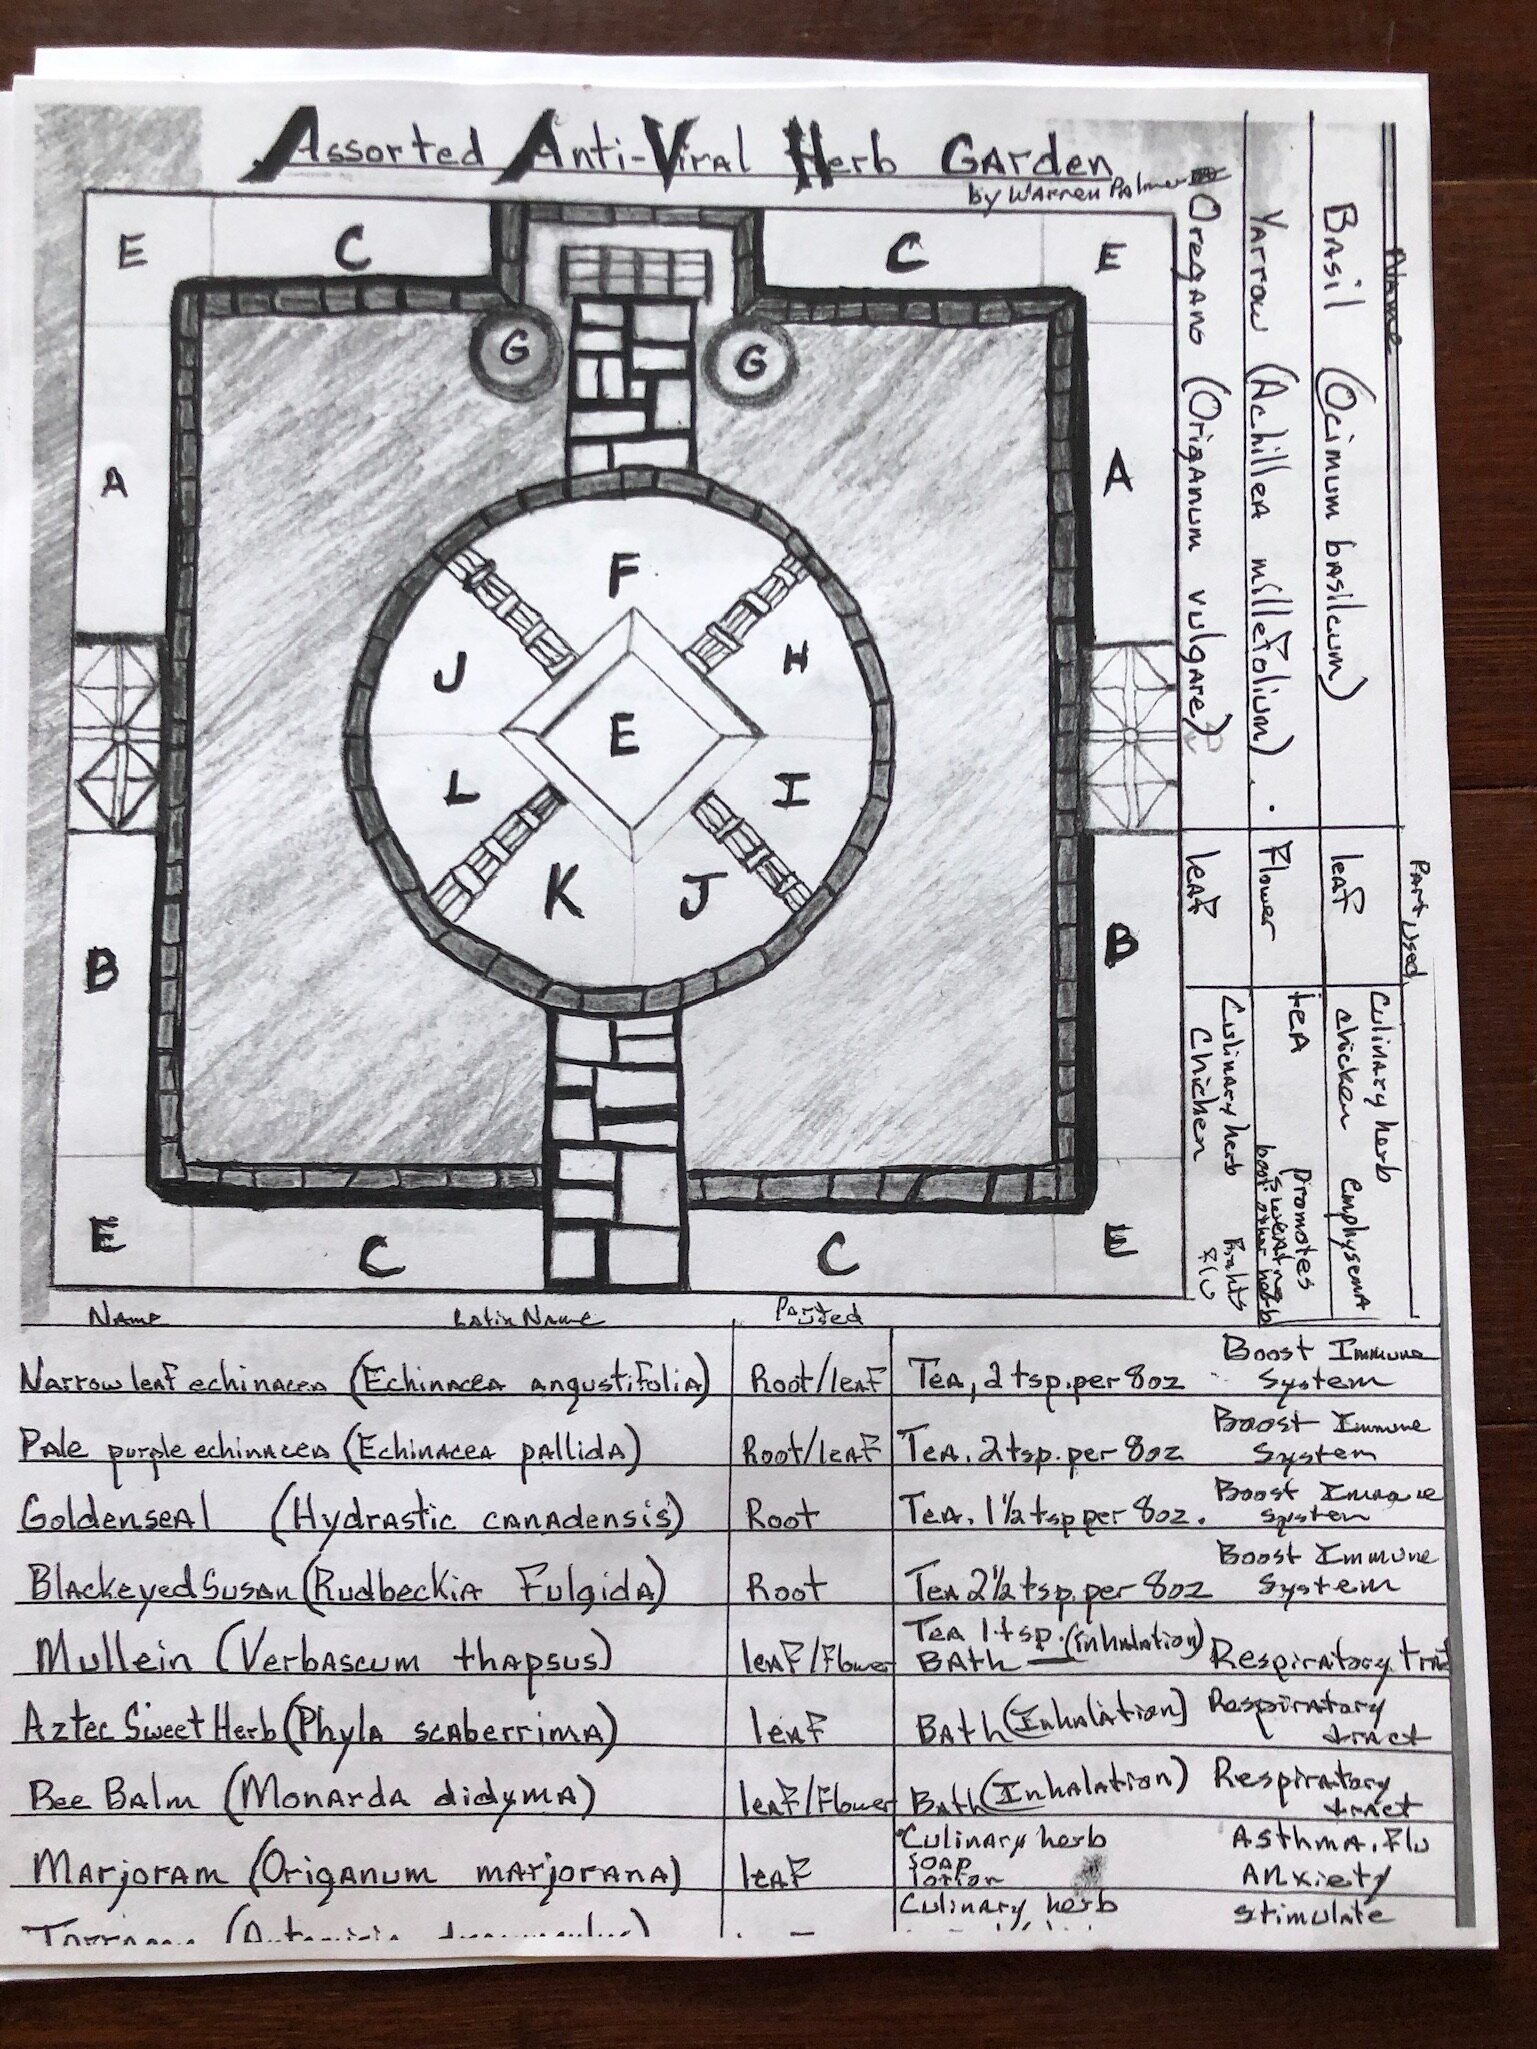 Assorted Anti-Viral Herb Garden
by Warren Palmer
E C C E
G G
A A
F
J H
E
L I
K J
B B
E C C E
Name Part Used
Basil (Ocimum basilcum) leaf Culinary herb chicken emphysema
Yarrow (Achillea millefolium). Flower tea Promotes sweating boost other herb
Oregano (Origanum vulgare) leaf Culinary herb Chichen Fights flu
Name Latin Name Part used
Narrow leaf echinacea (Echinacea angustifolia) Root/leaf Tea, 2 tsp. per 8oz Boost Immune System
Pale purple echinacea (Echinacea pallida) Root/leaf Tea. 2 tsp. per 8oz Boost Immune System
Goldenseal (Hydrastic canadensis) Root Tea. 1 1/2 tsp per 8oz. Boost Immune System
Blackeyed Susan (Rudbeckia Fulgida) Root Tea 2 1/2 tsp. per 8oz Boost Immune System
Mullein (Verbascum thapsus) leaf/Flower Tea 1 tsp. Bath (inhalation) Respiratory tract
Aztec Sweet Herb (Phyla scaberrima) leaf Bath (Inhalation) Respiratory tract
Bee Balm (Monarda didyma) leaf/Flower Bath (Inhalation) Respiratory tract
Marjoram (Origanum marjorana) leaf Culinary herb soap Asthma, Flu Anxiety
Culinary herb stimulate